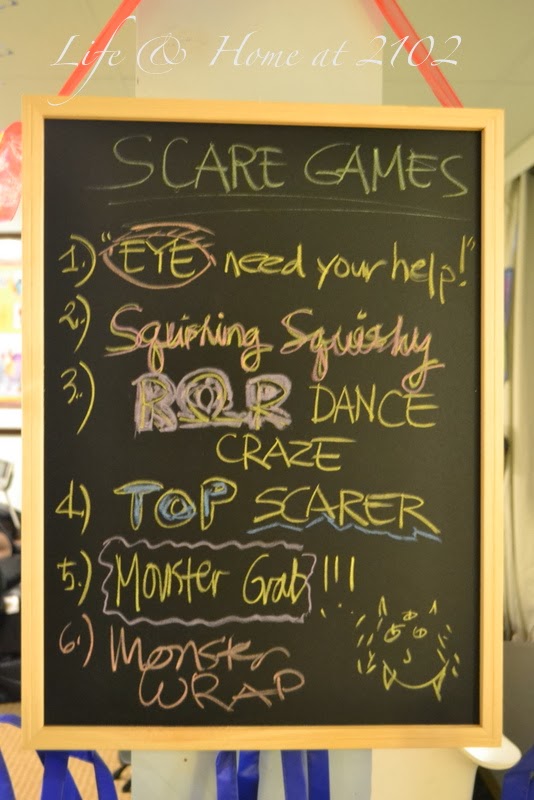 Life & Home at 2102
SCARE GAMES
1.) "EYE need your help!"
2.) Squishing Squishy
3.) ROR DANCE
CRAZE
4.) TOP SCARER
5.) Monster Grab !!!
6.) Monster
WRAP